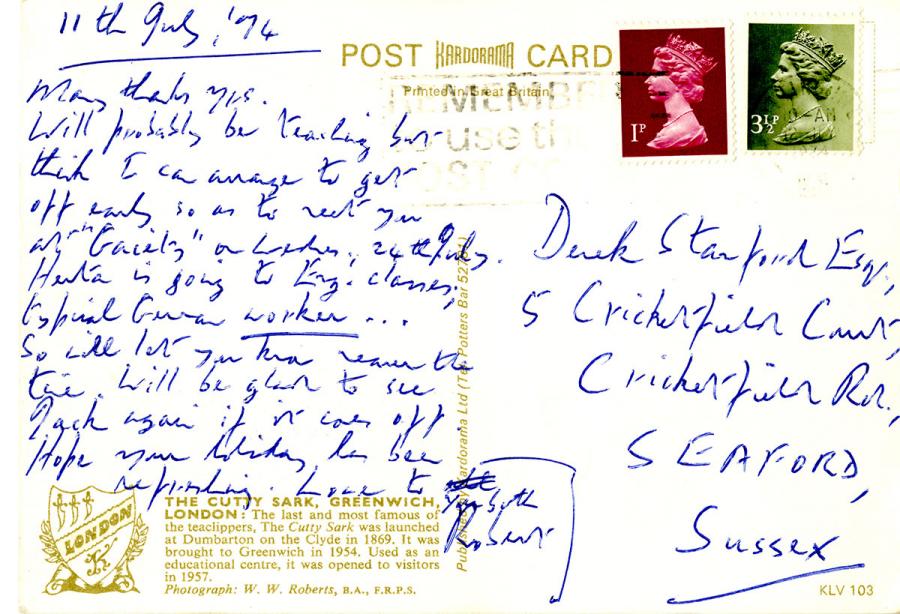 11th July, '74
POST KARDORAMA CARD
Printed in Great Britain.
REMEMBER
use the
POST CODE
1P
3½P
Many thanks yrs.
Will probably be teaching but
think I can arrange to get
off early so as to meet you
at "Gaiety" on Wednes., 24th July.
Herta is going to Eng. classes,
typical German worker ...
So will let you know nearer the
time. Will be glad to see
Jack again if it comes off.
Hope your holiday has been
refreshing. Love to
you both
Robert
Derek Stanford Esq.,
5 Cricketfield Court,
Cricketfield Rd.,
SEAFORD,
Sussex
Published by Kardorama Ltd (Tel. Potters Bar
THE CUTTY SARK, GREENWICH,
LONDON: The last and most famous of
the teaclippers, The Cutty Sark was launched
at Dumbarton on the Clyde in 1869. It was
brought to Greenwich in 1954. Used as an
educational centre, it was opened to visitors
in 1957.
Photograph: W. W. Roberts, B.A., F.R.P.S.
LONDON
K
KLV 103